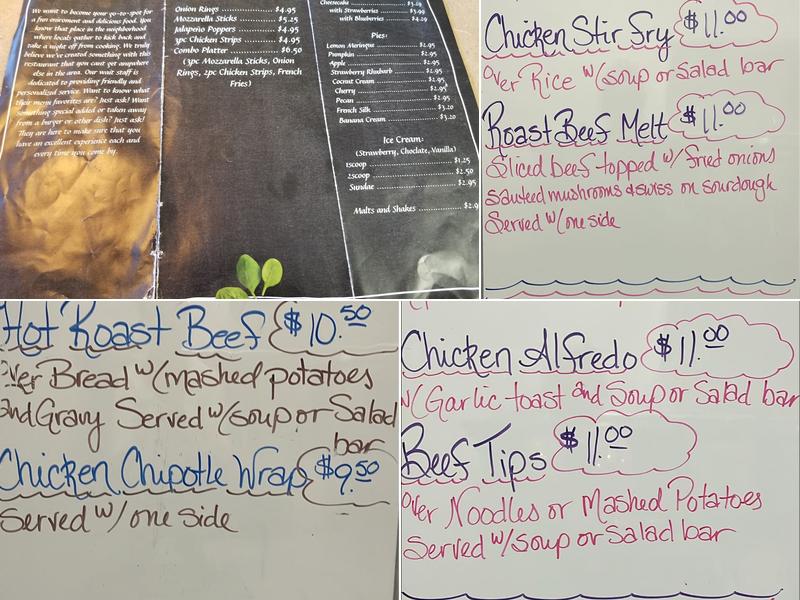 We want to become your go-to-spot for
a fun enviroment and delicious food. You
know that place in the neighborhood
where locals gather to kick back and
take a night off from cooking. We truly
believe we've created something with this
restaurant that you cant get anywhere
else in the area. Our wait staff is
dedicated to providing friendly and
personalized service. Want to know what
their menu favorites are? Just ask! Want
something special added or taken away
from a burger or other dish? Just ask!
They are here to make sure that you
have an excellent experience each and
every time you come by.
Onion Rings $4.95
Mozzarella Sticks $5.25
Jalapeño Poppers $4.95
3pc Chicken Strips $4.95
Combo Platter $6.50
(3pc Mozzarella Sticks, Onion
Rings, 2pc Chicken Strips, French
Fries)
Cheesecake $3.20
with Strawberries $3.99
with Blueberries $4.20
Pies:
Lemon Meringue $2.95
Pumpkin $2.95
Apple $2.95
Strawberry Rhubarb $2.95
Coconut Cream $2.95
Cherry $2.95
Pecan $2.95
French Silk $3.20
Banana Cream $3.20
Ice Cream:
(Strawberry, Choclate, Vanilla)
1scoop $1.25
2scoop $2.50
Sundae $2.95
Malts and Shakes $2.9
Chicken Stir Fry $11.00
Over Rice w/soup or Salad bar
Roast Beef Melt $11.00
Sliced beef topped w/ fried onions
sauteed mushrooms & swiss on sourdough
Served w/one side
Hot Roast Beef $10.50
Over Bread w/mashed potatoes
and Gravy Served w/soup or Salad
bar
Chicken Chipotle Wrap $9.50
Served w/ one side
Chicken Alfredo $11.00
w/ Garlic toast and Soup or Salad bar
Beef Tips $11.00
Over Noodles or Mashed Potatoes
Served w/soup or Salad bar